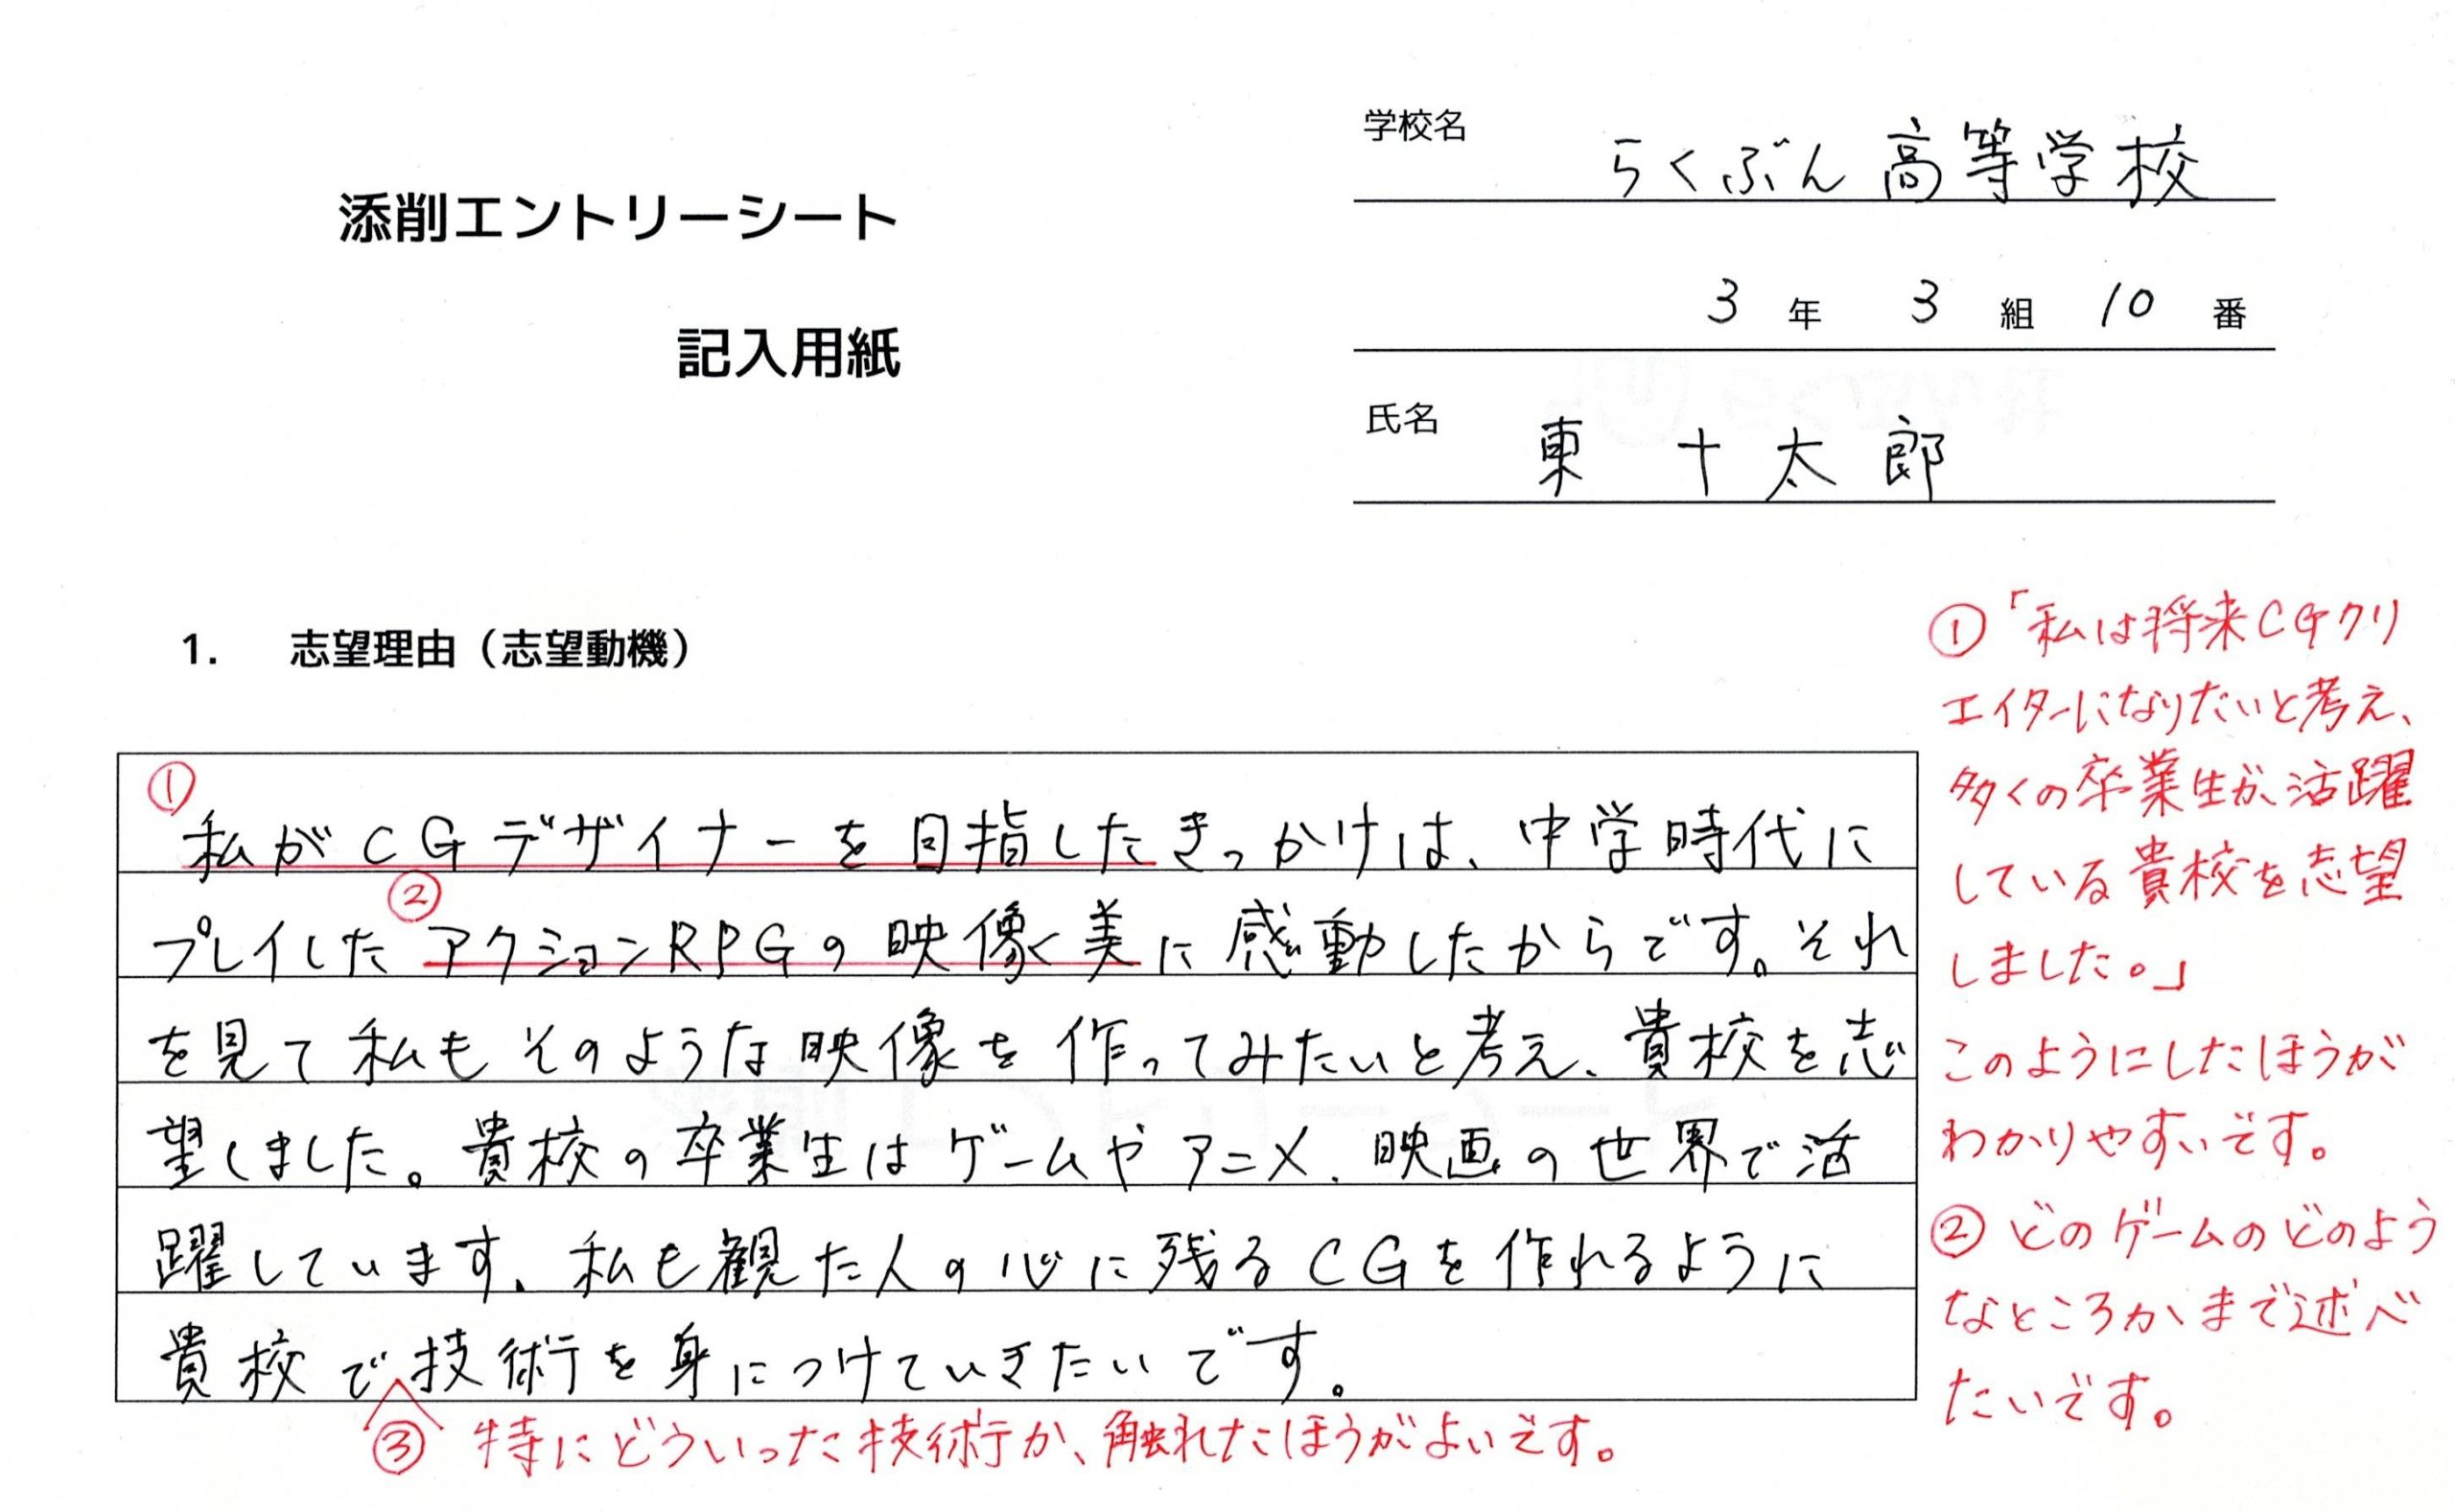 学校名
らくぶん高等学校
添削エントリーシート
3 年 3 組 10 番
記入用紙
氏名
東 十太郎
1. 志望理由（志望動機）
①
私がCGデザイナーを目指したきっかけは、中学時代に
②
プレイしたアクションRPGの映像く美に感動したからです。それ
を見て私もそのような映像を作ってみたいと考え、貴校を志
望しました。貴校の卒業生はゲームやアニメ、映画の世界で活
躍しています、私も観た人の心に残るCGを作れるように
貴校で技術を身につけていきたいです。
③ 特にどういった技術か、触れたほうがよいです。
①「私は将来CGクリ
エイターになりたいと考え、
多くの卒業生が活躍
している貴校を志望
しました。」
このようにしたほうが
わかりやすいです。
②どのゲームのどのよう
なところかまで述べ
たいです。